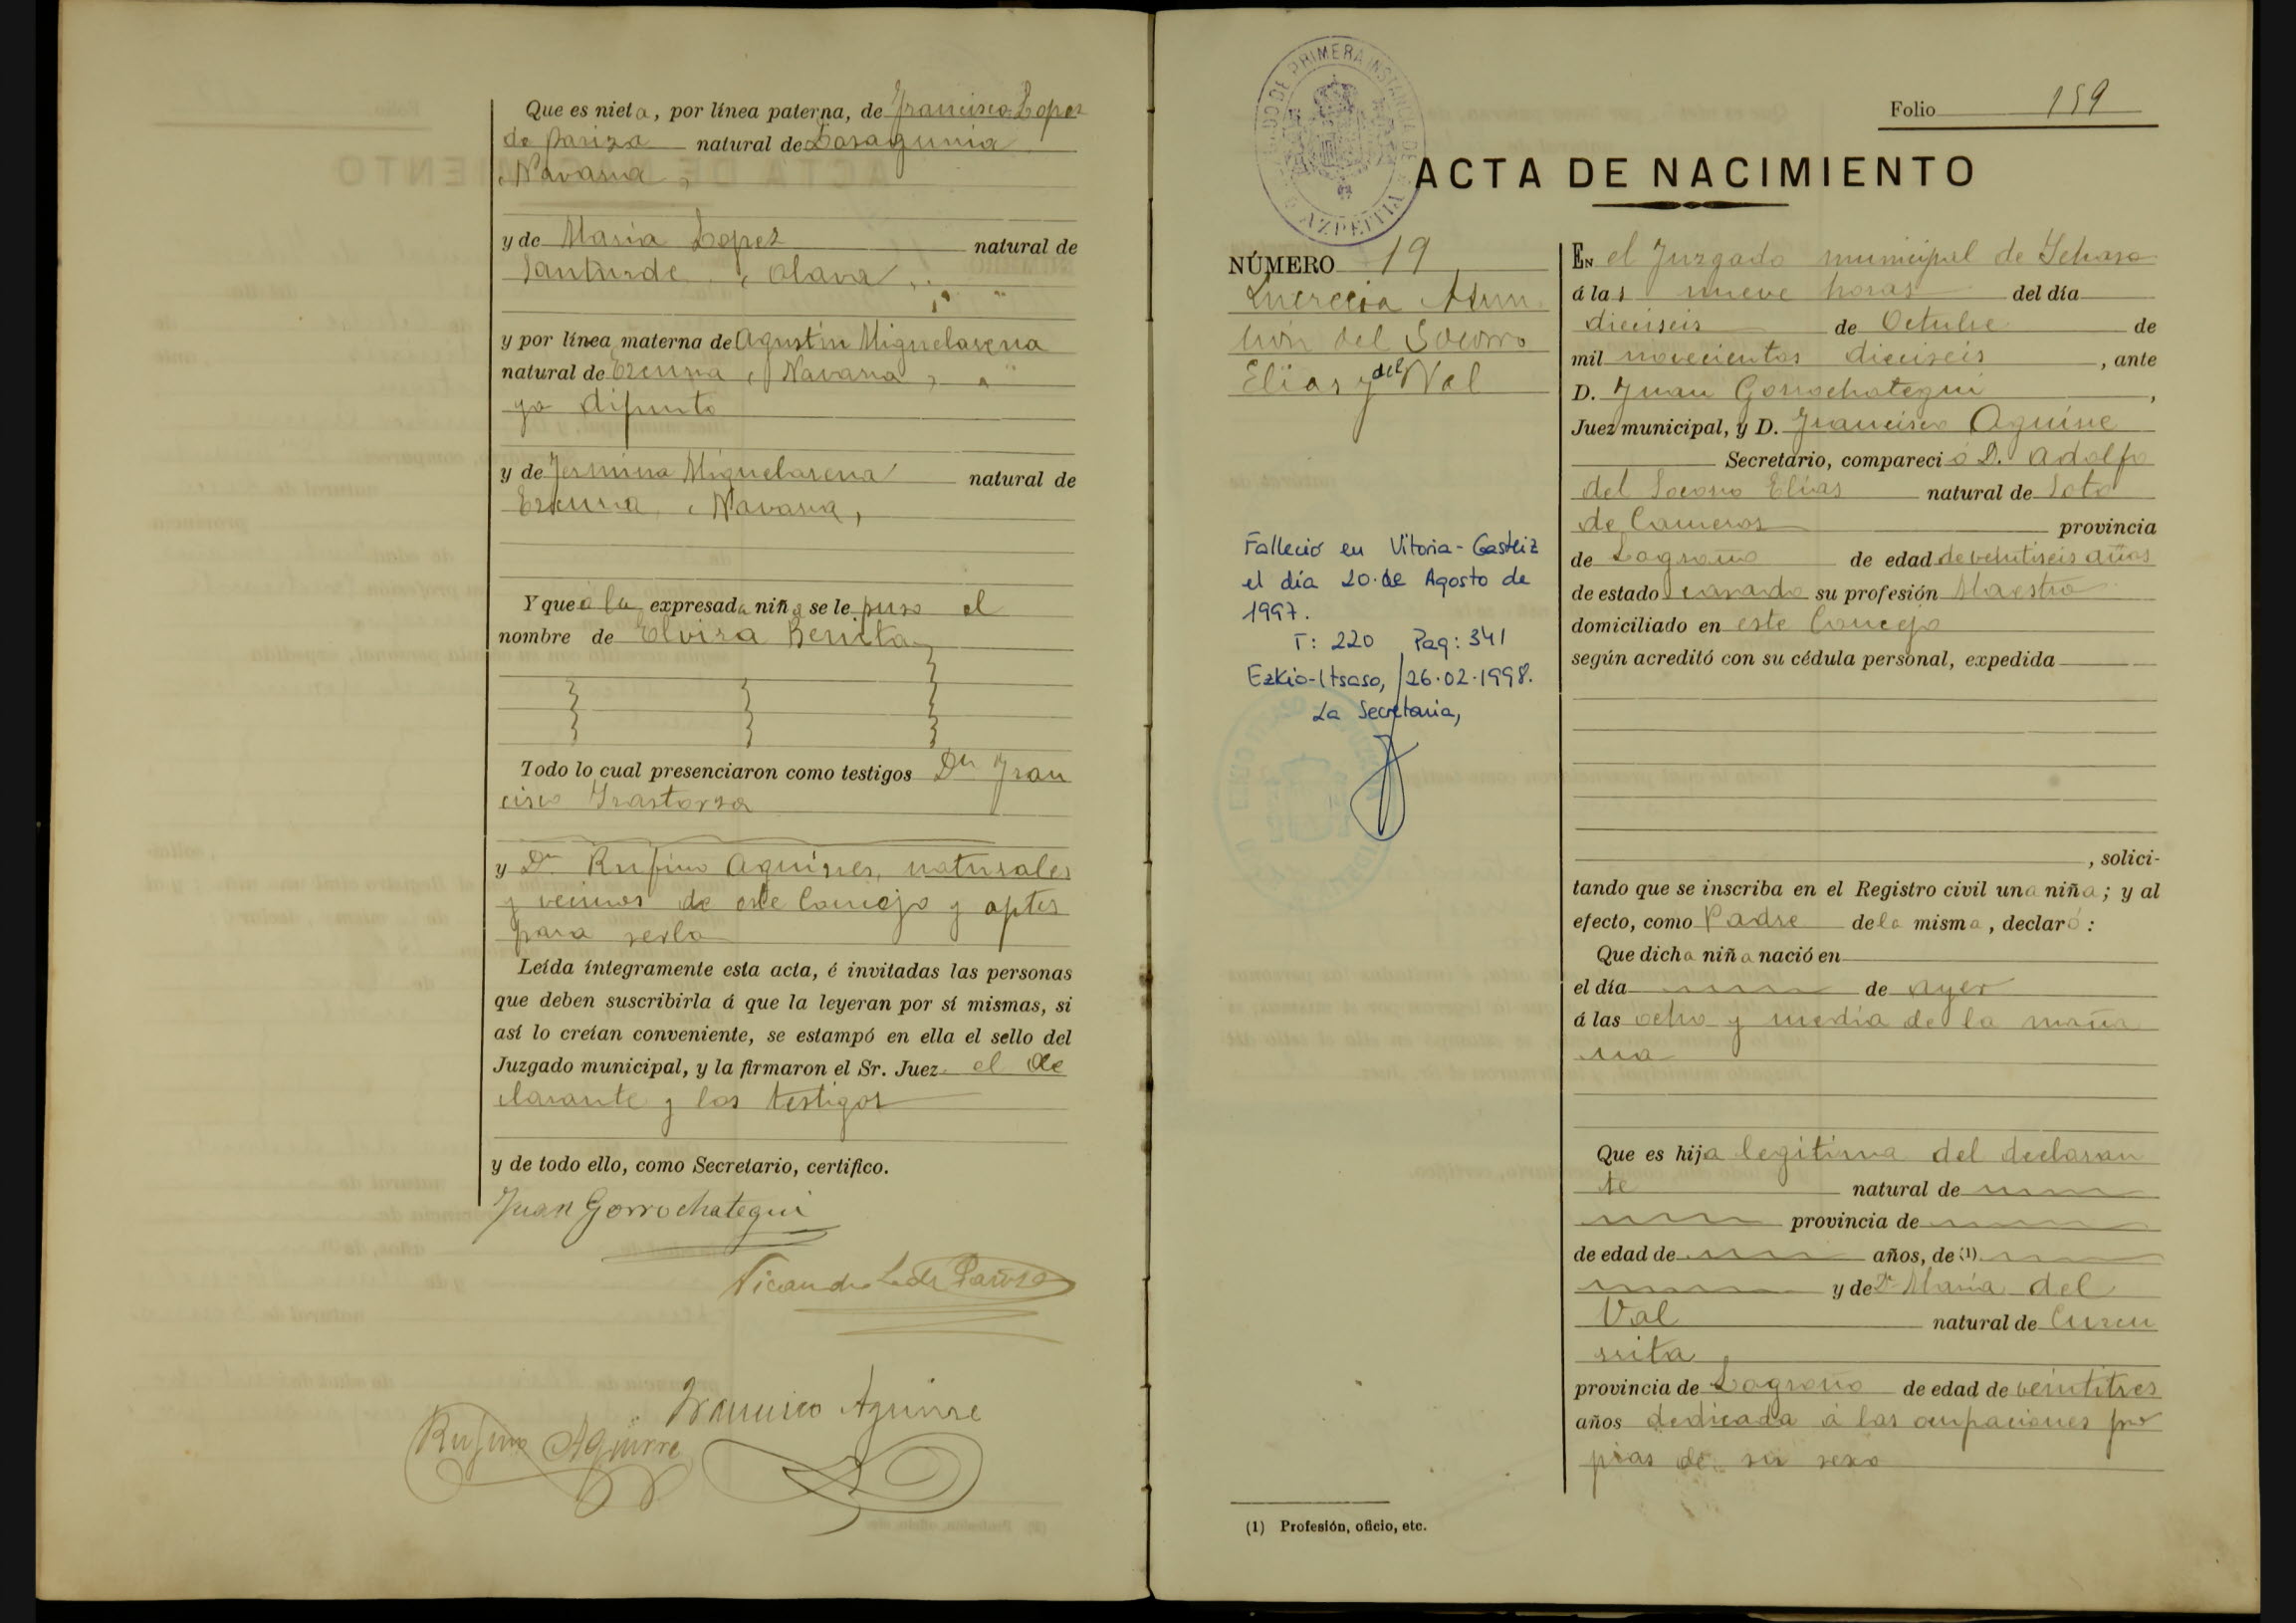 Que es nieta, por línea paterna, de Francisco Lopez
de Pariza natural de
Navarra,
y de Maria Lopez natural de
Santurde, Alava,
y por línea materna de Agustin Miguelarena
natural de Ezcurra, Navarra,
ya difunto
y de Fermina Miguelarena natural de
Ezcurra, Navarra,
Y que á la expresada niña se le puso el
nombre de Elvira Benita
Todo lo cual presenciaron como testigos Dn Fran
cisco Irastorza
y Dn Rufino Aguirre, naturales
y vecinos de este Concejo y aptos
para serlo
Leída íntegramente esta acta, é invitadas las personas
que deben suscribirla á que la leyeran por sí mismas, si
así lo creían conveniente, se estampó en ella el sello del
Juzgado municipal, y la firmaron el Sr. Juez el de
clarante y los testigos
y de todo ello, como Secretario, certifico.
Juan Gorrochategui
Nicandro L. de Pariza
Francisco Aguirre
Rufino Aguirre
JUZGADO DE PRIMERA INSTANCIA DE AZPEITIA
Folio 159
ACTA DE NACIMIENTO
NÚMERO 19
Lucrecia Asun
ción del Socorro
Elías y del Val
Falleció en Vitoria-Gasteiz
el día 20 de Agosto de
1997.
T: 220 Pag: 341
Ezkio-Itsaso, 26.02.1998.
La Secretaria,
EN el Juzgado municipal de Ichaso
á las nueve horas del día
dieciseis de Octubre de
mil novecientos dieciseis, ante
D. Juan Gorrochategui,
Juez municipal, y D. Francisco Aguirre
Secretario, compareció D. Adolfo
del Socorro Elías natural de Soto
de Cameros provincia
de Logroño de edad de veintiseis años
de estado casado su profesión Maestro
domiciliado en este Concejo
según acreditó con su cédula personal, expedida
, solici-
tando que se inscriba en el Registro civil una niña; y al
efecto, como Padre de la misma, declaró:
Que dicha niña nació en
el día de ayer
á las ocho y media de la maña
na
Que es hija legitima del declaran
te natural de
provincia de
de edad de años, de (1)
y de Dª Maria del
Val natural de Cuzcu
rrita
provincia de Logroño de edad de veintitres
años dedicada á las ocupaciones pro
pias de su sexo
(1) Profesión, oficio, etc.